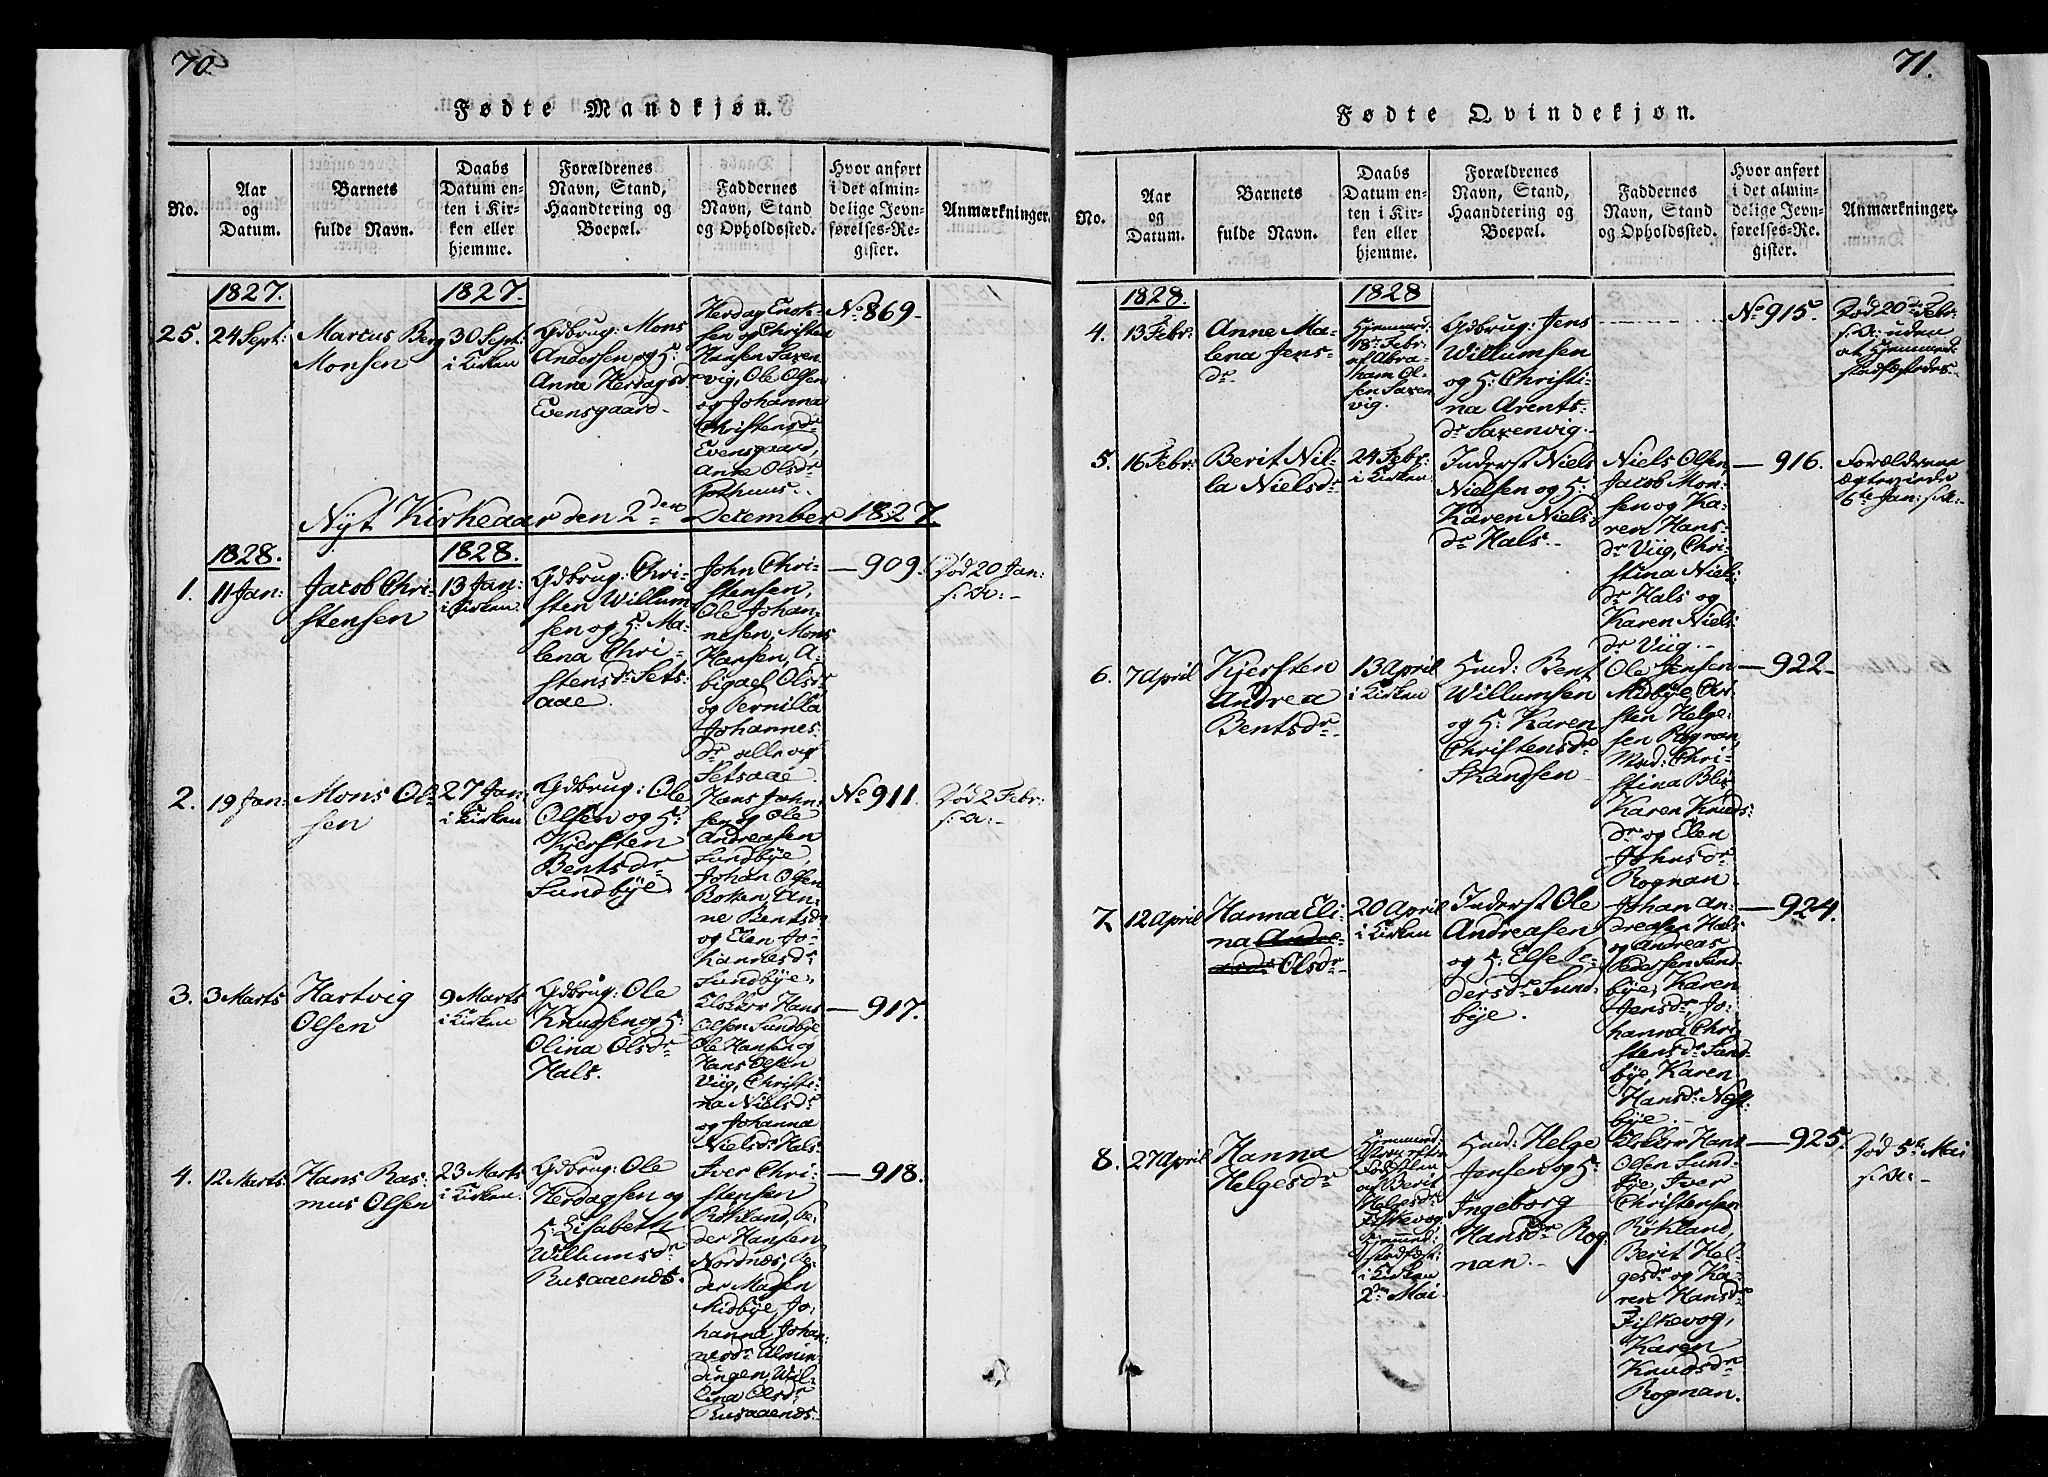 70.
Fødte Mandkjøn.
No.
Aar
og
Datum.
Barnets
fulde Navn.
Daabs
Datum en-
ten i Kir-
ken eller
hjemme.
Forældrenes
Navn, Stand,
Haandtering og
Boepæl.
Faddernes
Navn, Stand
og Opholdssted.
Hvor anført
i det almin-
delige Jevn-
førelses-Re-
gister.
Anmærkninger.
1827.
1827.
25.
24 Sept:
Marcus Berg
Monsen
30 Sept:
i Kirken
Gdbrug: Mons
Andersen og H:
Anne Herdagsdr
Evensgaard.
Herdag Enok-
sen og Christen
Hansen Saxen-
vig, Ole Olsen
og Johanna
Christensdr
Evensgaard,
Anne Olsdr
Pothuus.
No 869.
Nyt Kirkeaar den 2den December 1827.
1828.
1828.
1.
11 Jan:
Jacob Chri-
stensen
13 Jan:
i Kirken
Gdbrug: Chri-
sten Willum-
sen og H: Ma-
lena Chri-
stensdr Sets-
aae.
John Chri-
stensen,
Ole Johan-
nesen, Mons
Hansen, A-
bigael Olsdr
og Pernilla
Johannes-
dr alle og
Setsaae.
909.
Død 20 Jan:
s: A:
2.
19 Jan:
Mons Ol-
sen
27 Jan:
i Kirken
Gdbrug: Ole
Olsen og H:
Kjersten
Bentsdr
Sundbye
Hans John-
sen og Ole
Andreasen
Sundbye,
Johan Olsen
Botten, An-
ne Bentsdr
og Elen Jo-
hannesdr
Sundbye.
No 911.
Død 2 Febr:
s: A:
3.
3 Marts
Hartvig
Olsen
9 Marts
i Kirken
Gdbrug: Ole
Knudsen og H:
Olina Olsdr
Hals.
Klokker Hans
Olsen Sundbye
Ole Hansen og
Hans Olsen
Viig, Christi-
na Nielsdr
og Johanna
Nielsdr Hals
917.
4.
12 Marts
Hans Ras-
mus Olsen
23 Marts
i Kirken
Gdbrug: Ole
Herdagsen og
H: Lisabeth
Willumsdr
Rusaaenes.
Iver Chri-
stensen
Rokland, Pe-
der Hansen
Nordnæs, Pe-
der Madsen
Midbye, Jo-
hanna Johan-
nesdr Almin-
dingen, Wil-
lina Olsdr
Rusaaenes.
918.
71.
Fødte Qvindekjøn.
No.
Aar
og
Datum.
Barnets
fulde Navn.
Daabs
Datum en-
ten i Kir-
ken eller
hjemme.
Forældrenes
Navn, Stand,
Haandtering og
Boepæl.
Faddernes
Navn, Stand
og Opholdssted.
Hvor anført
i det almin-
delige Jevn-
førelses-Re-
gister.
Anmærkninger.
1828.
1828
4.
13 Febr:
Anne Ma-
lena Jens-
dr
Hjemmed:
18 Febr:
af Abra-
ham Ol-
sen Saxen-
vig.
Gdbrug: Jens
Willumsen
og H: Christi-
na Arents-
dr Saxenvig.
No 915.
Død 20de Febr:
s: A: uden
at Hjemmed:
stadfæstedes.
5.
16 Febr:
Berit Nil-
la Nielsdr
24 Febr:
i Kirken
Inderst Niels
Nielsen og H:
Karen Niels-
dr Hals.
Niels Olsen,
Jacob Mon-
sen og Ka-
ren Hans-
dr Viig, Chri-
stina Niels-
dr Hals og
Karen Niels-
dr Viig.
916.
Forældrene
Ægteviede
6te Jan: s: A:
6.
7 April
Kjersten
Andrea
Bentsdr
13 April
i Kirken
Huusmd: Bent
Willumsen
og H: Karen
Christensdr
Skandsen
Ole Jensen
Midbye, Chri-
sten Helge-
sen Rognan,
Mad: Chri-
stina Blix
Karen Knuds-
dr og Elen
Johnsdr
Rognan
922
7.
12 April
Hanna Eli-
na Andre-
asdr Olsdr
20 April
i Kirken
Inderst Ole
Andreasen
og H: Else Pe-
dersdr Sund-
bye.
Johan An-
dreasen Hals
og Andreas
Pedersen Sund-
bye, Karen
Jensdr, Jo-
hanna Chri-
stensdr Sund-
bye, Karen
Hansdr Nest-
bye
924.
8.
27 April
Hanna
Helgesdr
Hjemmed:
og Berit
Helgesdr
Fiskevog,
Hjemmed:
stadfæst:
i Kirken
2den Mai
Huusmd: Helge
Jensen og H:
Ingeborg
Hansdr Rog-
nan.
Klokker Hans
Olsen Sund-
bye, Iver
Christensen
Rokland,
Berit Hel-
gesdr og Ka-
ren Hansdr
Fiskevog,
Karen
Knudsdr
Rognan.
925.
Død 5te Mai
s: A: